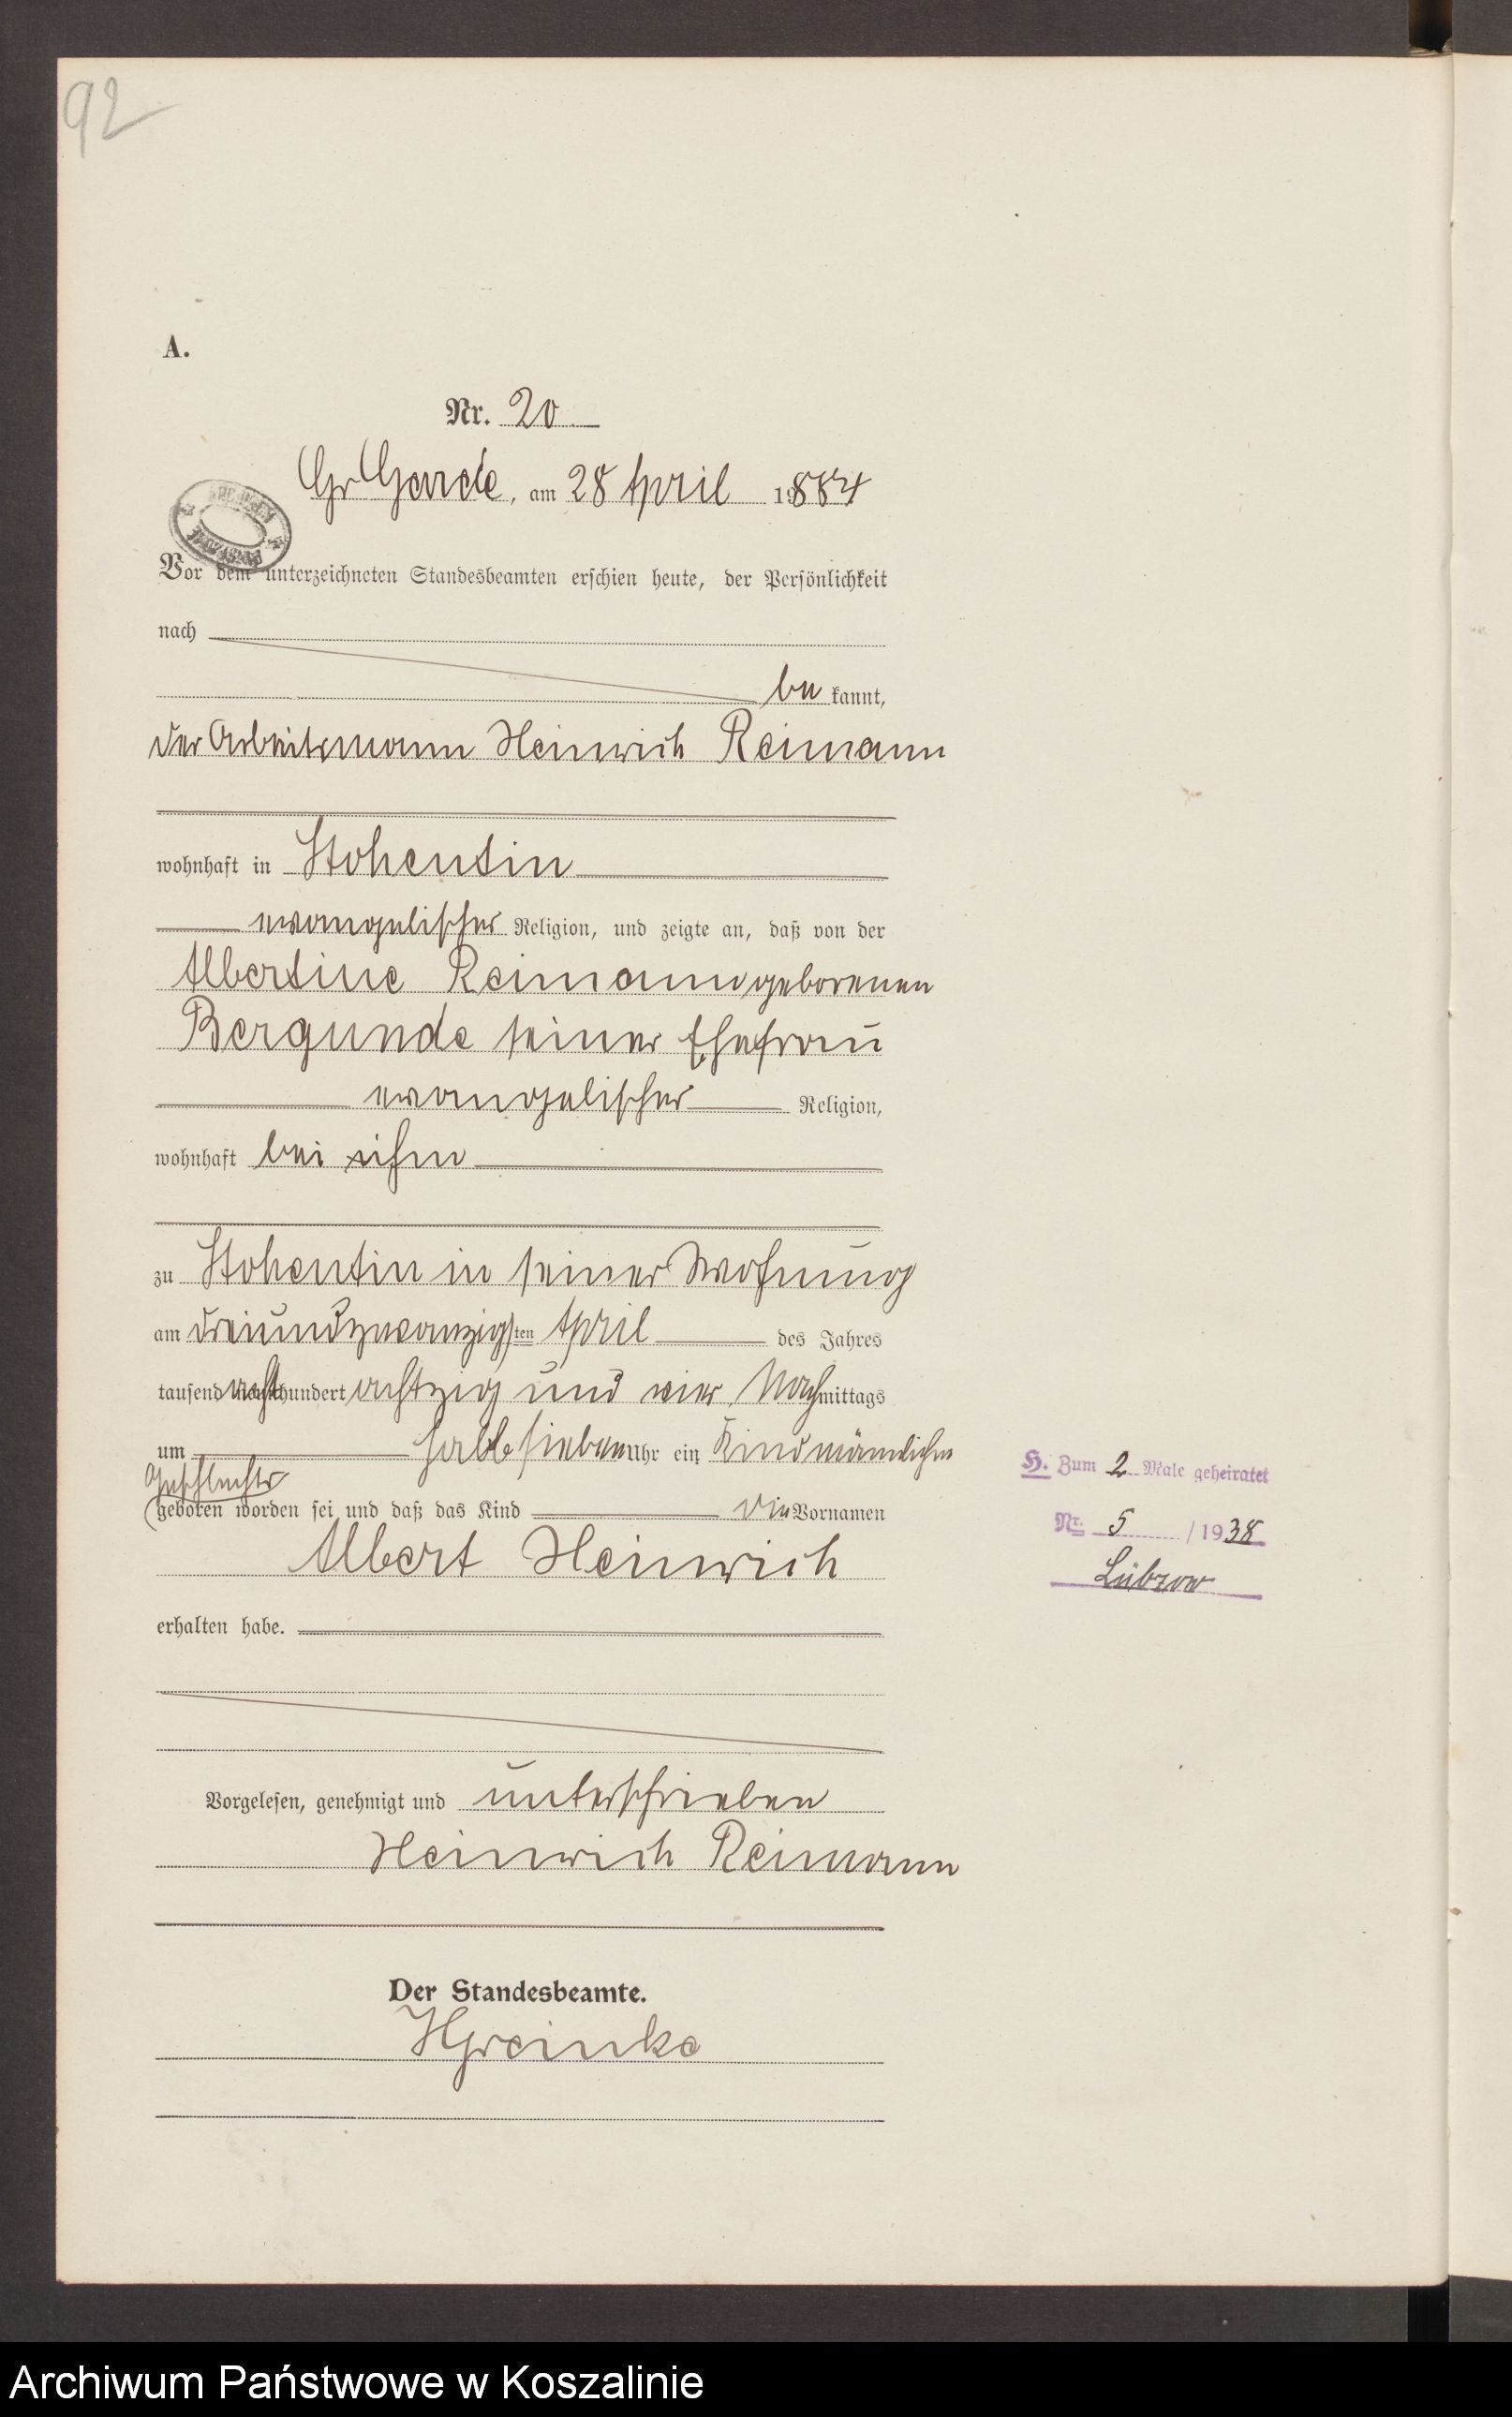 92
A.
Nr. 20
Gr Garde, am 28 April 1884
Vor dem unterzeichneten Standesbeamten erschien heute, der Persönlichkeit
nach
be kannt,
der Arbeitsmann Heinrich Reimann
wohnhaft in Stohentin
evangelischer Religion, und zeigte an, daß von der
Albertine Reimann geborenen
Bergunde seiner Ehefrau
evangelischer Religion,
wohnhaft bei ihm
zu Stohentin in seiner Wohnung
am dreiundzwanzigsten April des Jahres
tausend acht hundert achtzig und vier Nachmittags
um halb sieben Uhr ein Kind männlichen
Geschlechts
geboren worden sei und daß das Kind die Vornamen
Albert Heinrich
erhalten habe.
H. Zum 2 Male geheiratet
Nr. 5 / 1938
Lübzow
Vorgelesen, genehmigt und unterschrieben
Heinrich Reimann
Der Standesbeamte.
Archiwum Państwowe w Koszalinie